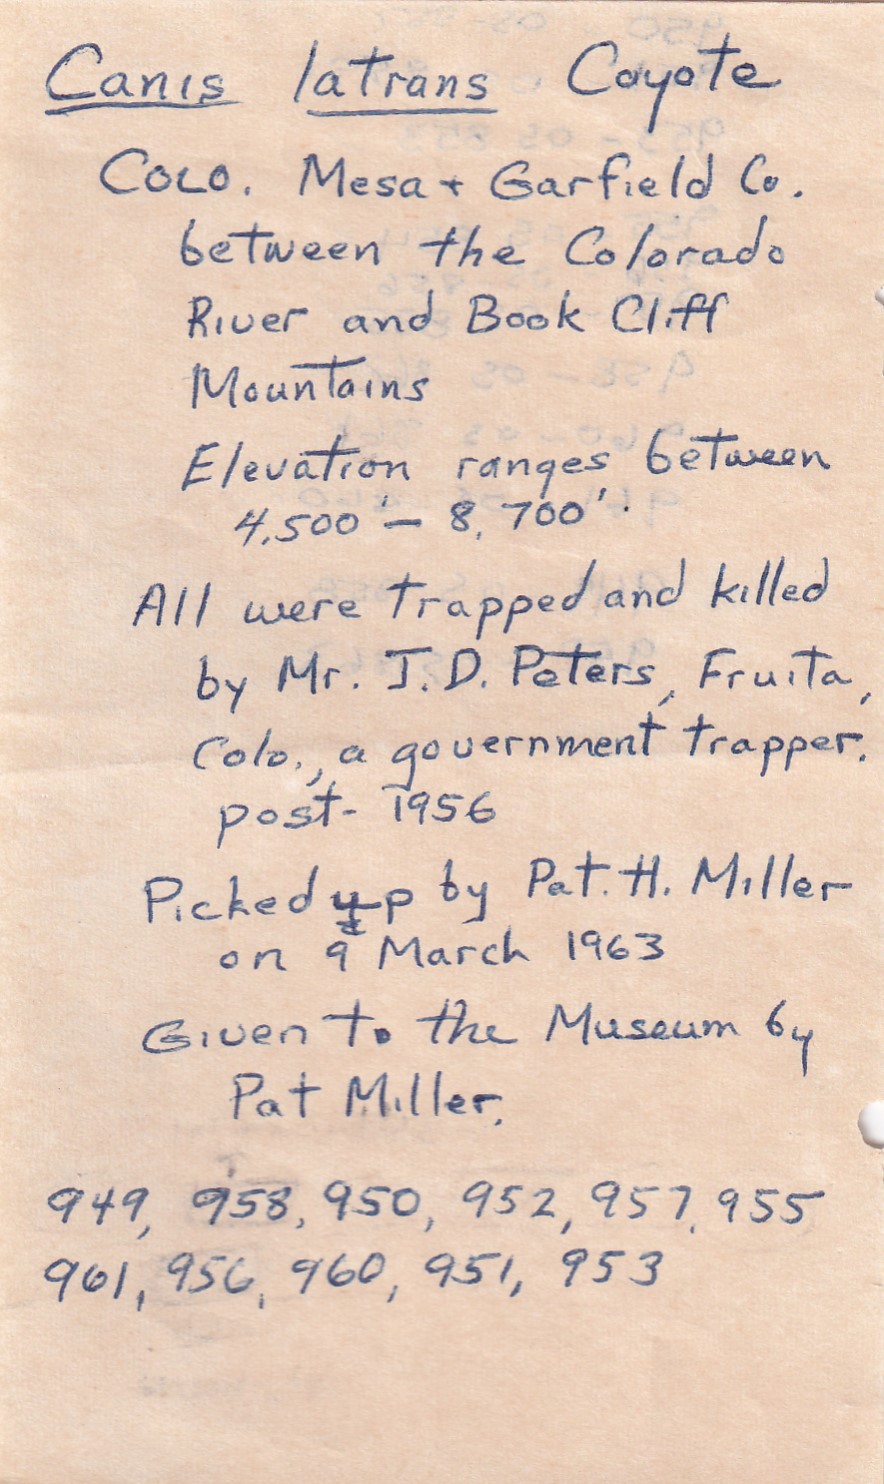 Canis latrans Coyote
Colo. Mesa + Garfield Co.
between the Colorado
River and Book Cliff
Mountains
Elevation ranges between
4,500' – 8,700'.
All were trapped and killed
by Mr. J.D. Peters, Fruita,
Colo., a government trapper.
post- 1956
Picked up by Pat. H. Miller
on 9 March 1963
Given to the Museum by
Pat Miller.
949, 958, 950, 952, 957, 955
961, 956, 960, 951, 953